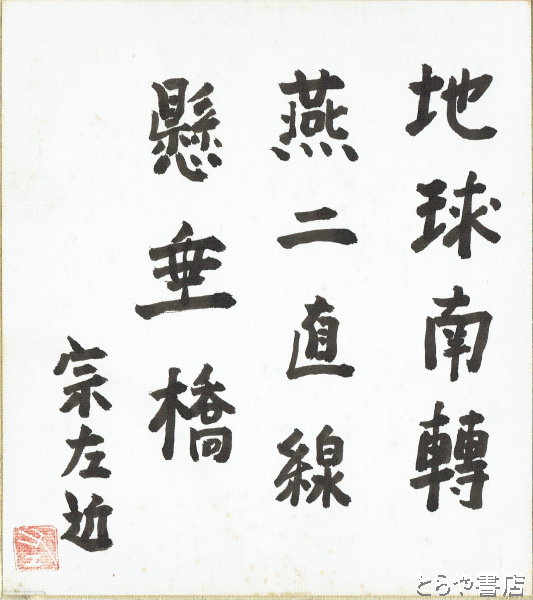 地球南轉
燕二直線
懸垂橋
宗左近
とらや書店